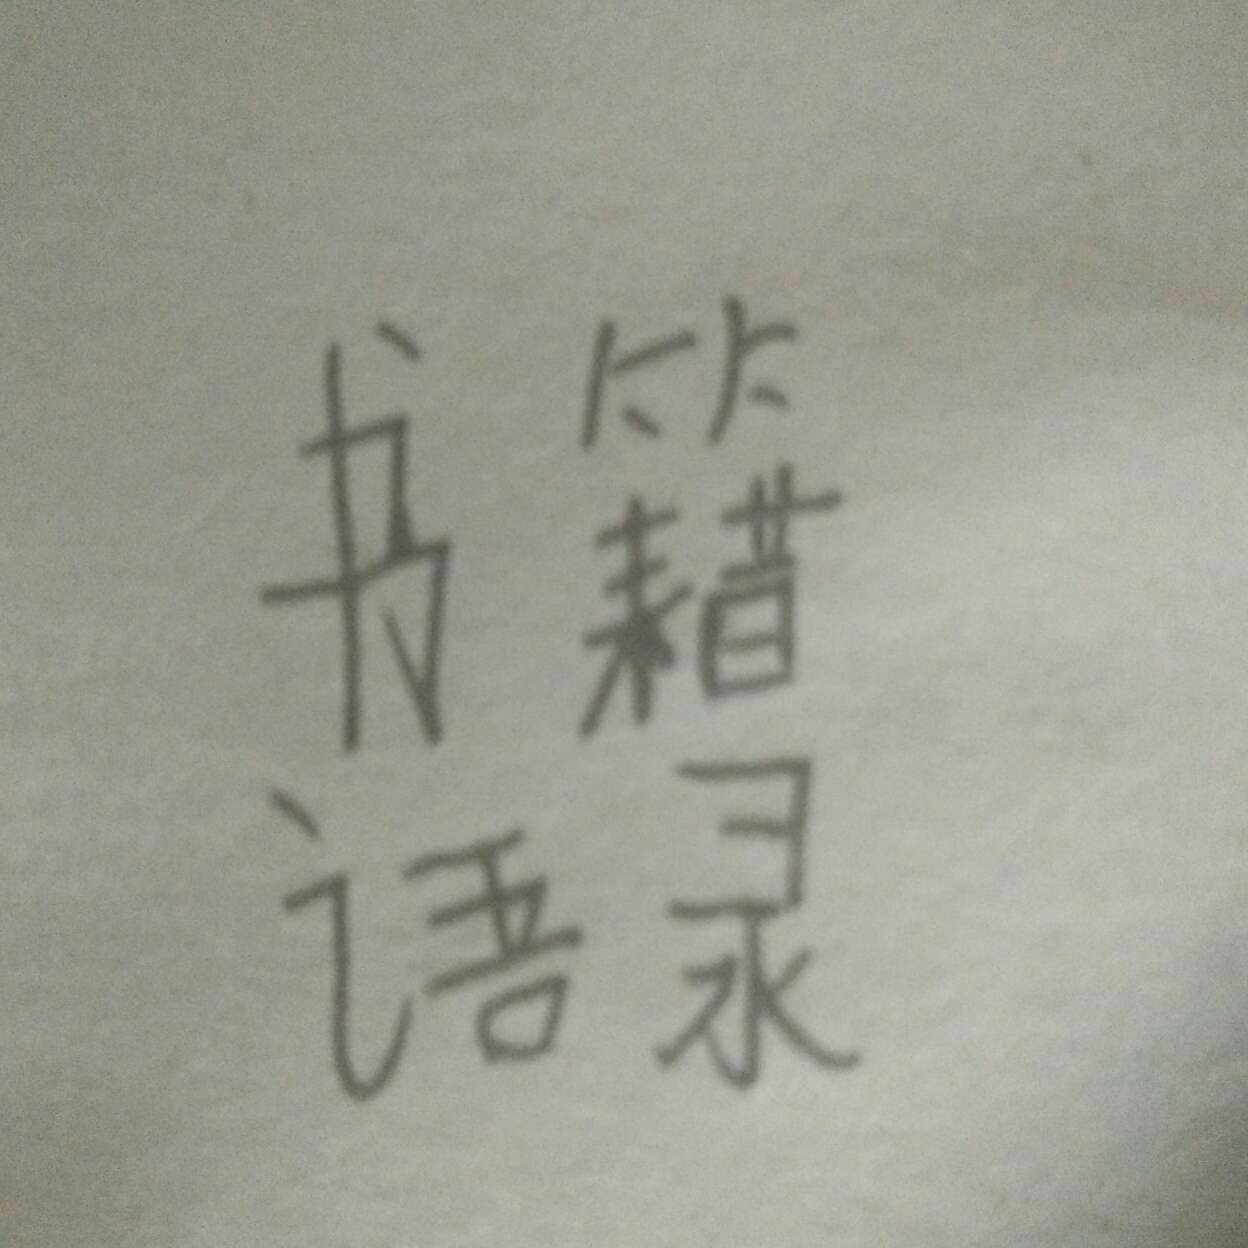 书籍
语录